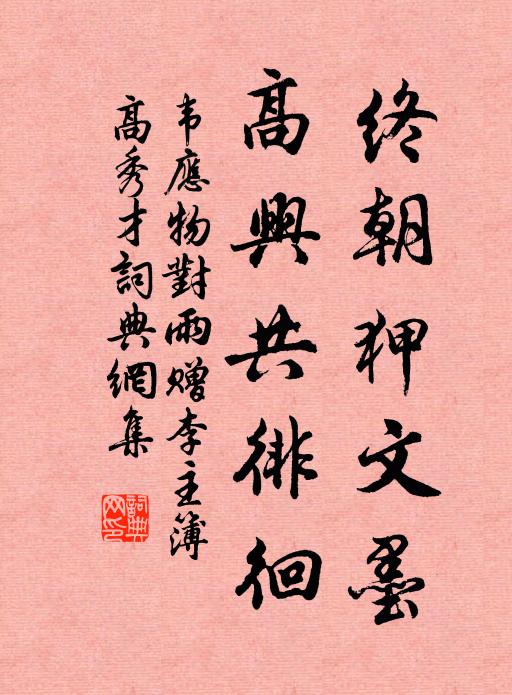 终朝狎文墨
高興共徘徊
韦應物對雨赠李主簿
高秀才詞典網集
詞典
网印